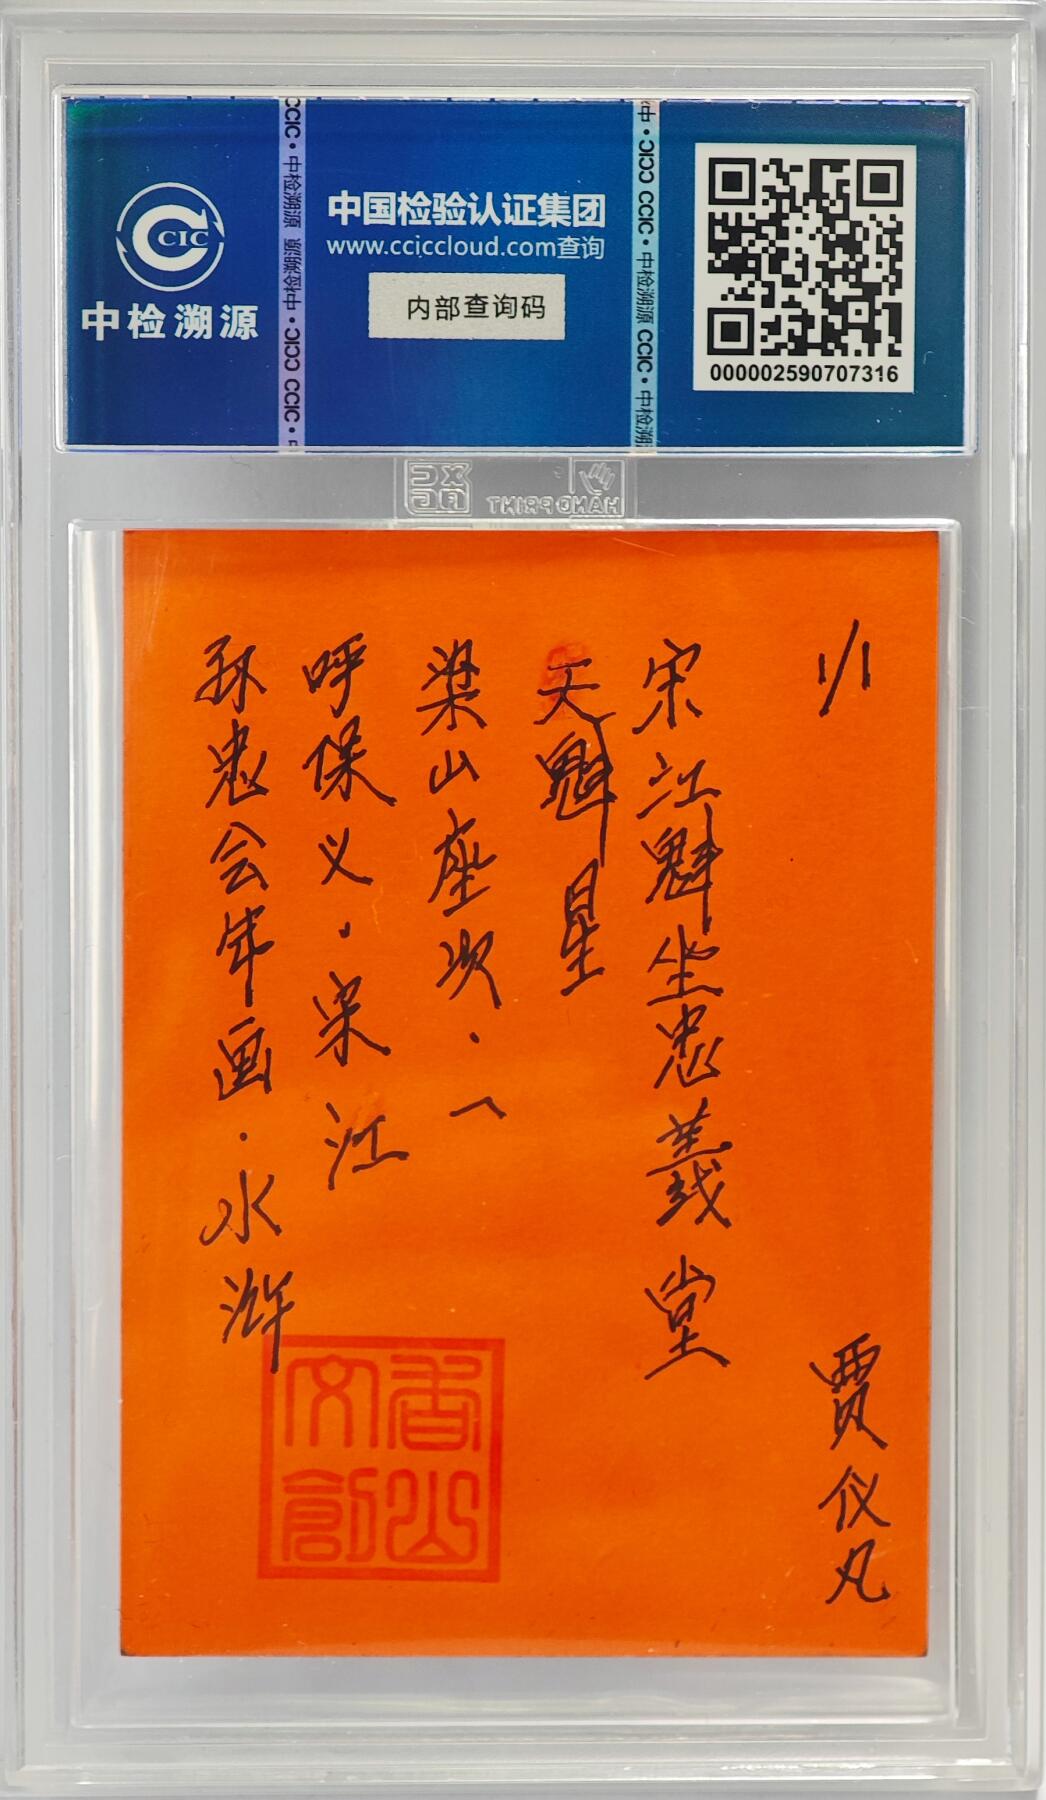 CIC
中检溯源
CCIC·中检溯源 中检溯源 中·CCIC CCIC·
中国检验认证集团
www.cciccloud.com查询
内部查询码
中·CCIC CCIC·中检溯源 CCIC·中检溯
000002590707316
HAND PRINT
1/1
贾仪凡
宋江魁坐忠義堂
天魁星
梁山座次·一
呼保义·宋江
孙忠会年画·水浒
香山
文創